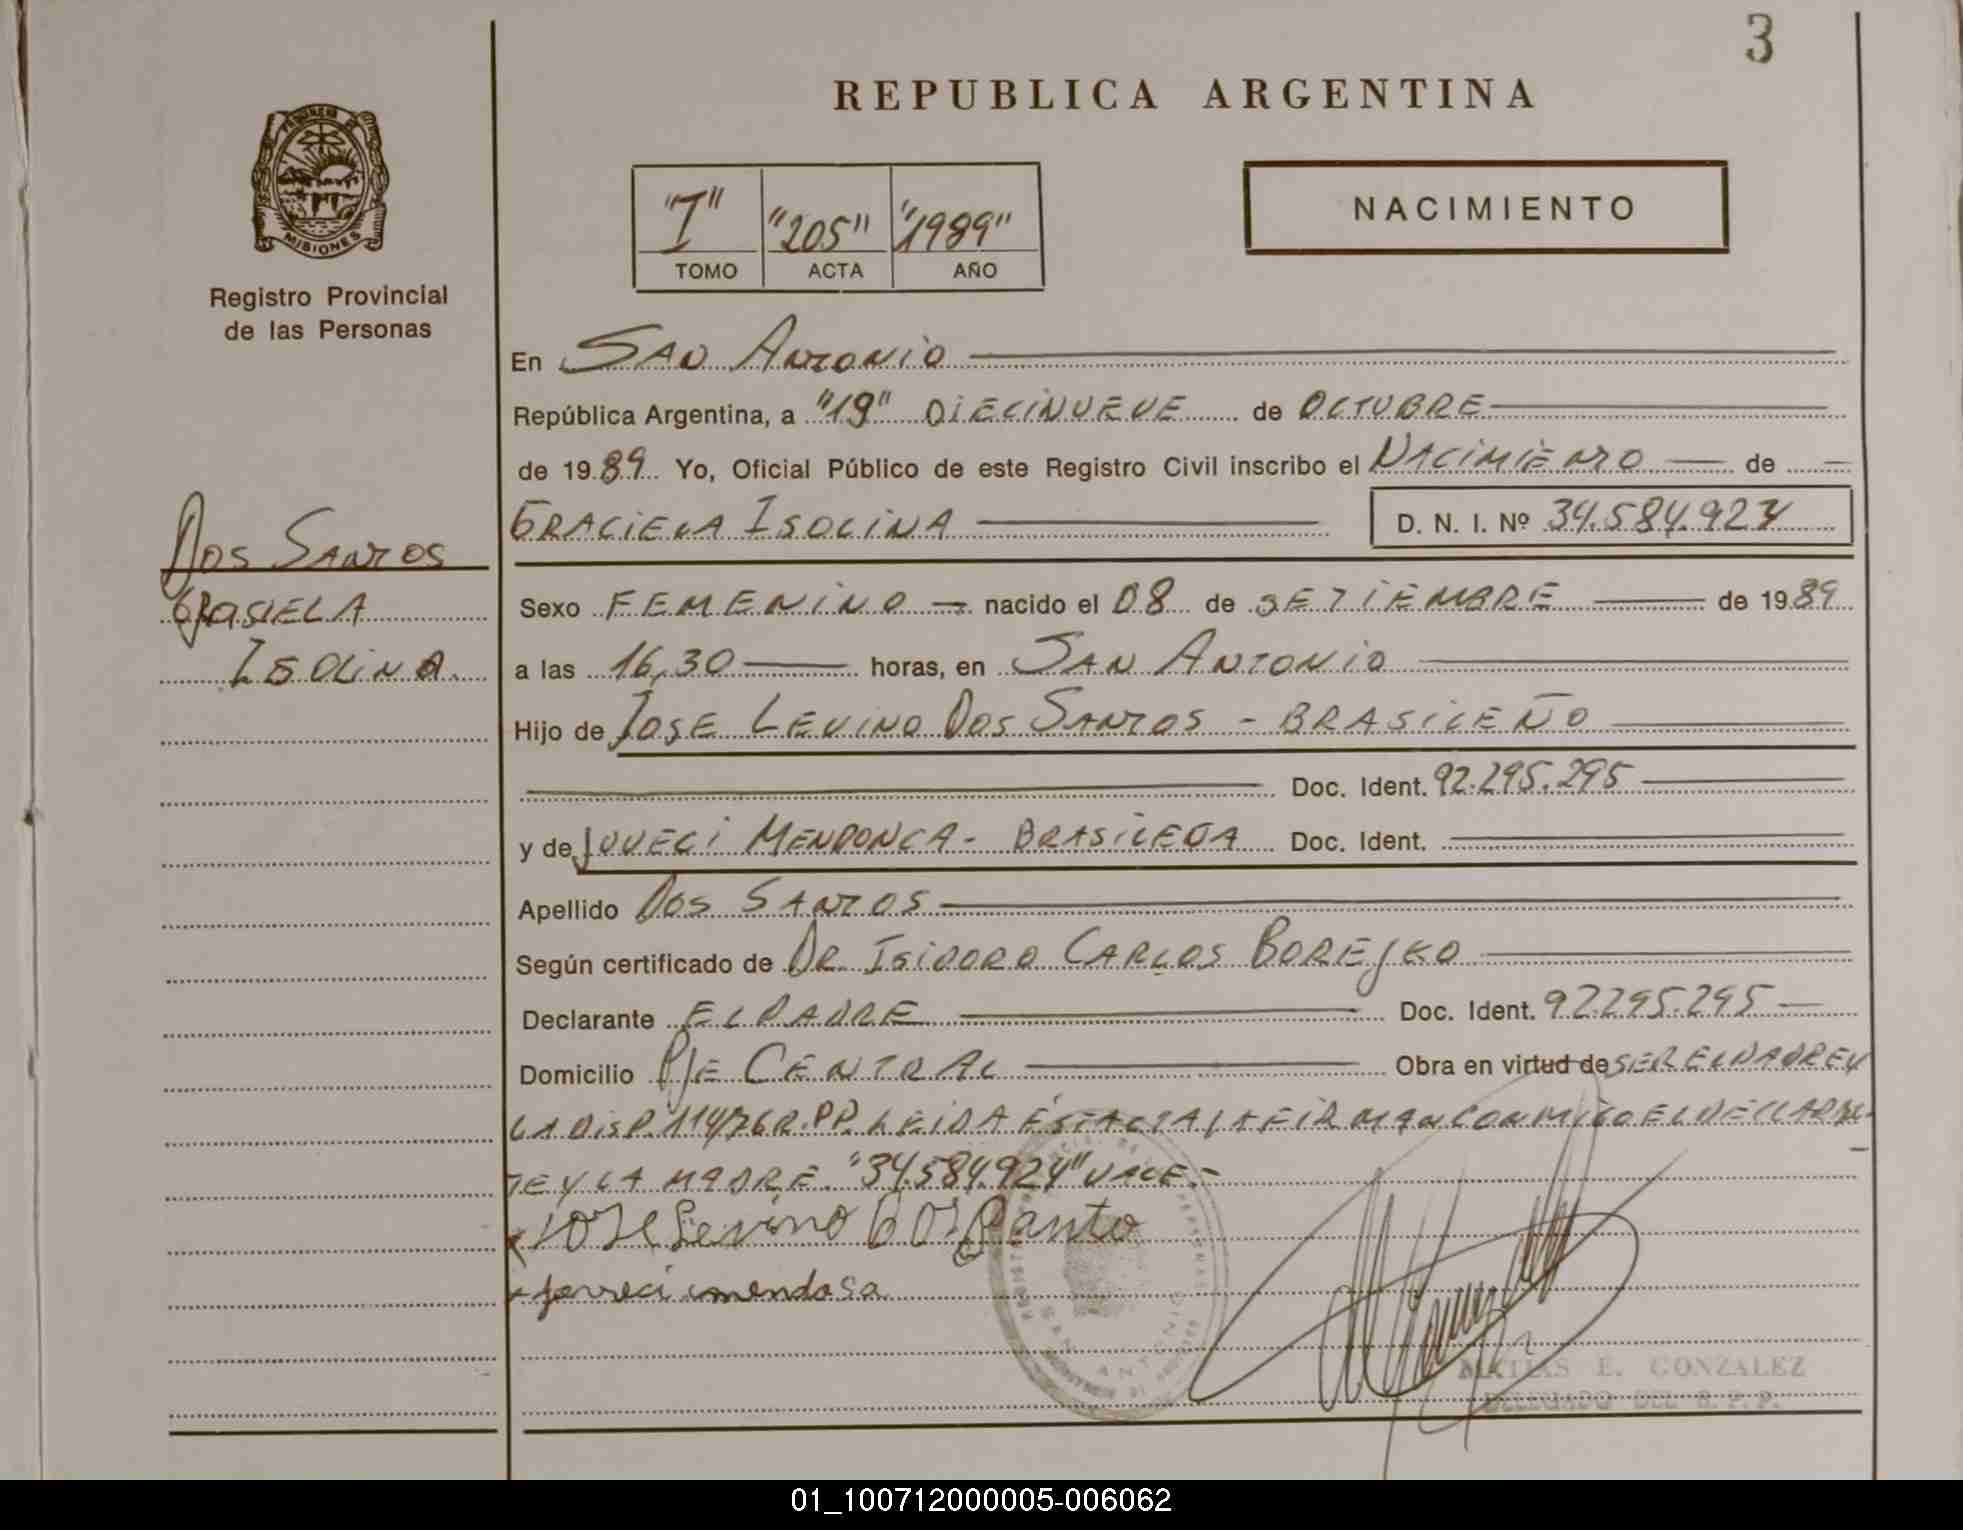 3
REPUBLICA ARGENTINA
PROVINCIA DE
MISIONES
Registro Provincial
de las Personas
"I" "205" "1989"
TOMO ACTA AÑO
NACIMIENTO
En San Antonio
República Argentina, a "19" DIECINUEVE de OCTUBRE
de 1989 Yo, Oficial Público de este Registro Civil inscribo el NACIMIENTO de
GRACIELA ISOLINA D. N. I. Nº 34.584.924
Dos Santos
GRASIELA
ISOLINA
Sexo FEMENINO nacido el 08 de SETIEMBRE de 1989
a las 16,30 horas, en SAN ANTONIO
Hijo de JOSE LEVINO DOS SANTOS - BRASILEÑO
Doc. Ident. 92.295.295
y de JOVECI MENDONCA - BRASILEÑA Doc. Ident.
Apellido DOS SANTOS
Según certificado de DR. ISIDORO CARLOS BOREJKO
Declarante EL PADRE Doc. Ident. 92.295.295
Domicilio PJE CENTRAL Obra en virtud de SER EL PADRE Y
LA DISP. 114/76 R.PP. LEIDA ESTA ACTA LA FIRMAN CONMIGO EL DECLARAN-
TE Y LA MADRE. "34.584.924" VALE.-
JOSE Levino DOS Santo
joveci mendosa
SAN ANTONIO
MATIAS E. GONZALEZ
DELEGADO DEL R. P. P.
01_100712000005-006062